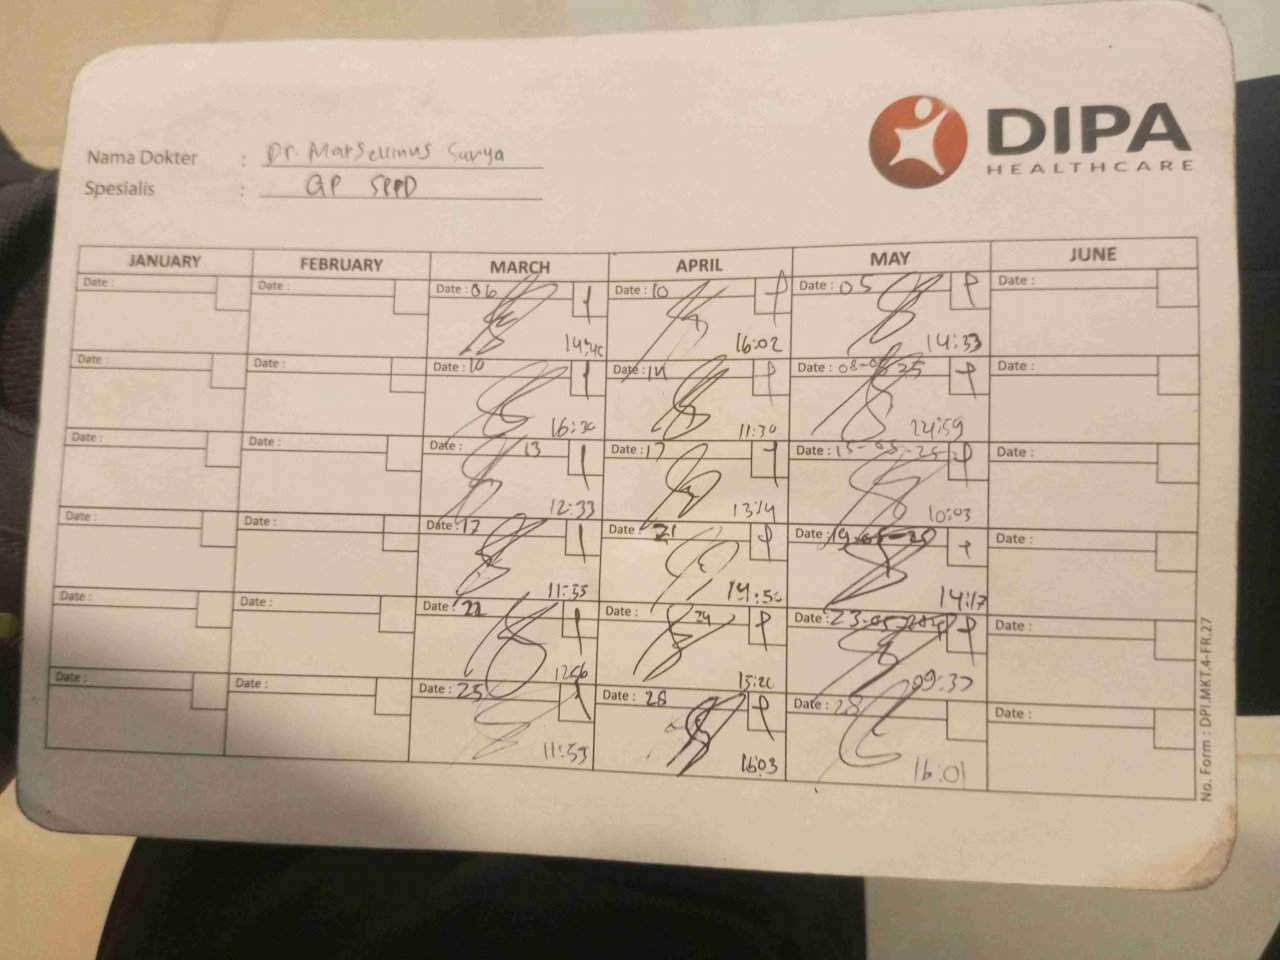 DIPA
HEALTHCARE
Nama Dokter : Dr. Marselinus Surya
Spesialis : GP SPPD
JANUARY FEBRUARY MARCH APRIL MAY JUNE
Date : Date : Date : 06 Date : 10 Date : 05 Date :
14:40 16:02 14:33
Date : Date : Date : 10 Date : 14 Date : 08- 25 Date :
16:30 11:30 14:59
Date : Date : Date : 13 Date : 17 Date : 15-05-25 Date :
12:33 13:14 10:03
Date : Date : Date : 17 Date : 21 Date : 19-05-25 Date :
11:35 14:50 14:17
Date : Date : Date : Date : 24 Date : 23-05- Date :
15:20 09:37
Date : Date : Date : 25 Date : 28 Date : 28 Date :
11:59 16:03 16:01
No. Form : DPI.MKT.4-FR.27